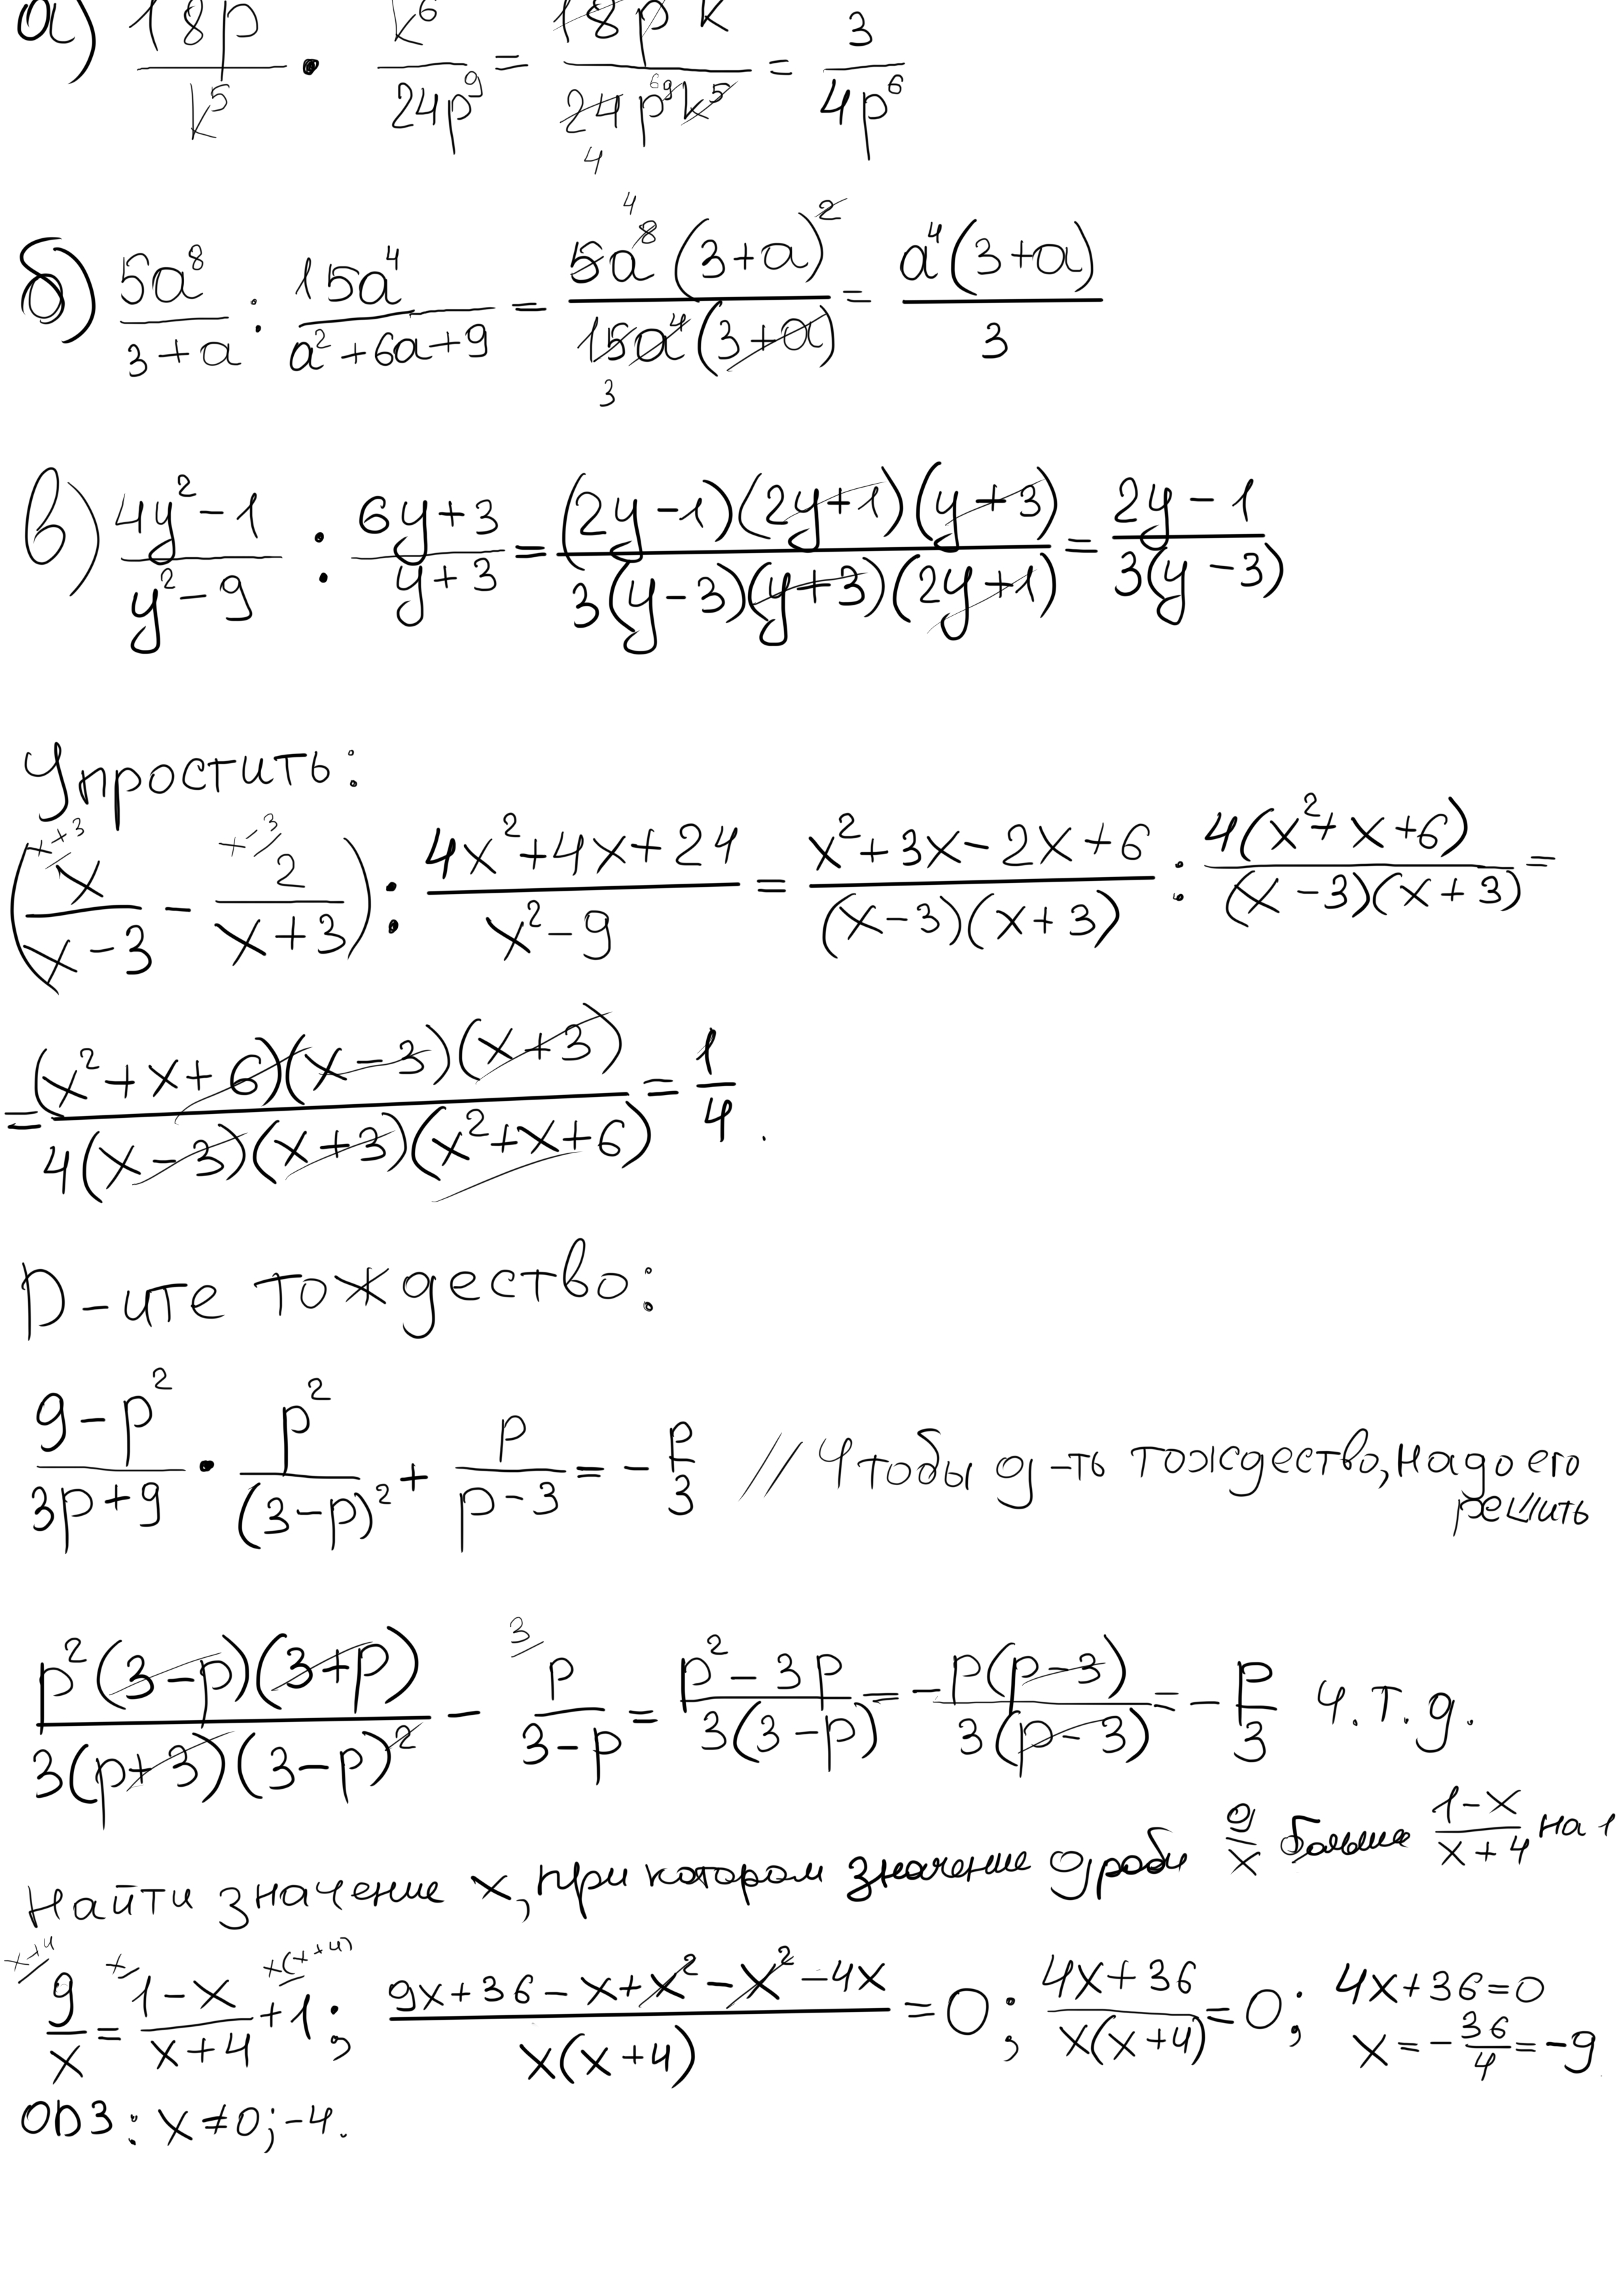 а) 18p / k⁵ · k⁶ / 24p⁹ = 18 p k / 24 p⁹ k⁵ = 3 / 4p⁶
6
4
б) 5a⁸ / 3+a : 15a⁴ / a²+6a+9 = 5a⁸(3+a)² / 15a⁴(3+a) = a⁴(3+a) / 3
4
3
в) 4y²-1 / y²-9 : 6y+3 / y+3 = (2y-1)(2y+1)(y+3) / 3(y-3)(y+3)(2y+1) = 2y-1 / 3(y-3)
Упростить:
x+3 x-3
(x / x-3 - 2 / x+3) : 4x²+4x+24 / x²-9 = x²+3x-2x+6 / (x-3)(x+3) : 4(x²+x+6) / (x-3)(x+3) =
= (x²+x+6)(x-3)(x+3) / 4(x-3)(x+3)(x²+x+6) = 1/4.
D-ите тождество:
9-p² / 3p+9 · p² / (3-p)² + p / p-3 = - p/3 // Чтобы д-ть тождество, надо его
решить
3
p²(3-p)(3+p) / 3(p+3)(3-p)² - p / 3-p = p²-3p / 3(3-p) = - p(p-3) / 3(p-3) = - p/3 ч.т.д.
Найти значение x, при котором значение дроби 9/x больше 1-x / x+4 на 1
x+4 x x(x+4)
9/x = 1-x / x+4 + 1; 9x+36-x+x²-x²-4x / x(x+4) = 0; 4x+36 / x(x+4) = 0; 4x+36=0
x = - 36/4 = -9
ОDЗ: x ≠ 0; -4.